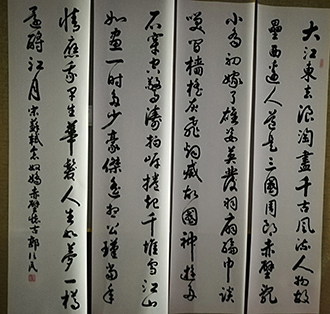 大江東去浪淘盡千古風流人物故
壘西邊人道是三國周郎赤壁亂
小喬初嫁了雄姿英發羽扇綸巾談
笑間檣櫓灰飛烟滅故國神遊多
石穿空驚濤拍岸捲起千堆雪江山
如畫一時多少豪傑遥想公瑾當年
情應我早生華髮人生如夢一樽
還酹江月 宋蘇軾念奴嬌赤壁懷古